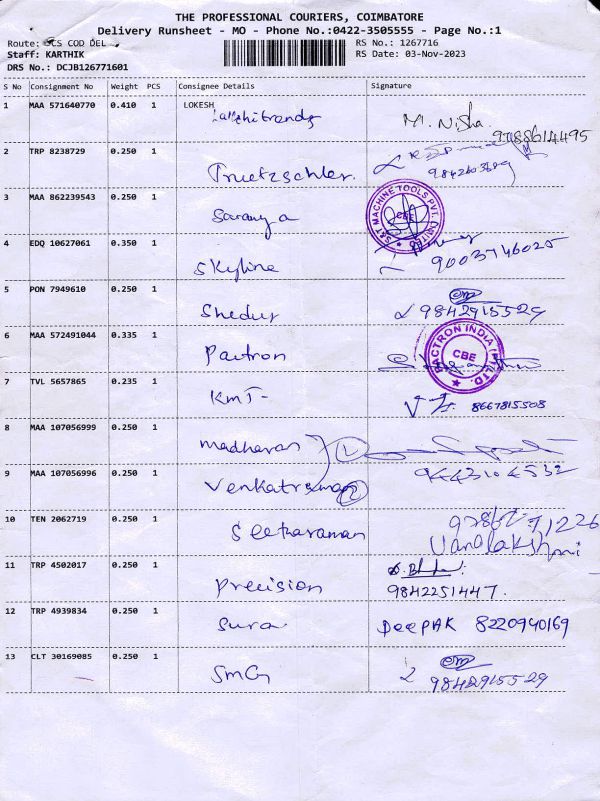 THE PROFESSIONAL COURIERS, COIMBATORE
Delivery Runsheet - MO - Phone No.:0422-3505555 - Page No.:1
Route: CS COD DEL
RS No.: 1267716
Staff: KARTHIK
RS Date: 03-Nov-2023
DRS No.: DCJB126771601
S No Consignment No Weight PCS Consignee Details Signature
1 MAA 571640770 0.410 1 LOKESH M. Nisha
9788614495
2 TRP 8238729 0.250 1 Truetzschler.
3 MAA 862239543 0.250 1 Saranya S&T MACHINE TOOLS PVT. LIMITED CBE
4 EDQ 10627061 0.350 1 Skyline 9003746025
5 PON 7949610 0.250 1 Shedur 9842915529
6 MAA 572491044 0.335 1 Pactron PACTRON INDIA (P) LTD. CBE
7 TVL 5657865 0.235 1 KMT- 8667815508
8 MAA 107056999 0.250 1 Madhavan
9 MAA 107056996 0.250 1 Venkatraman 2 9443104532
10 TEN 2062719 0.250 1 Seetharaman
Vanalakshmi
11 TRP 4502017 0.250 1 Precision 9842251447.
12 TRP 4939834 0.250 1 Sura DEEPAK 8220940169
13 CLT 30169085 0.250 1 SMG 9842915529